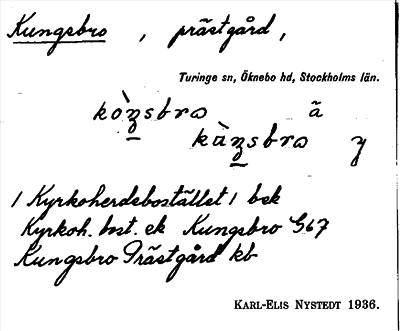 Kungsbro , prästgård,
Turinge sn, Öknebo hd, Stockholms län.
kòŋsbrɷ ã
kùŋsbrɷ y
/ Kyrkoherdebostället / bek
Kyrkoh. bost. ek Kungsbro G67
Kungsbro Prästgård kb
KARL-ELIS NYSTEDT 1936.